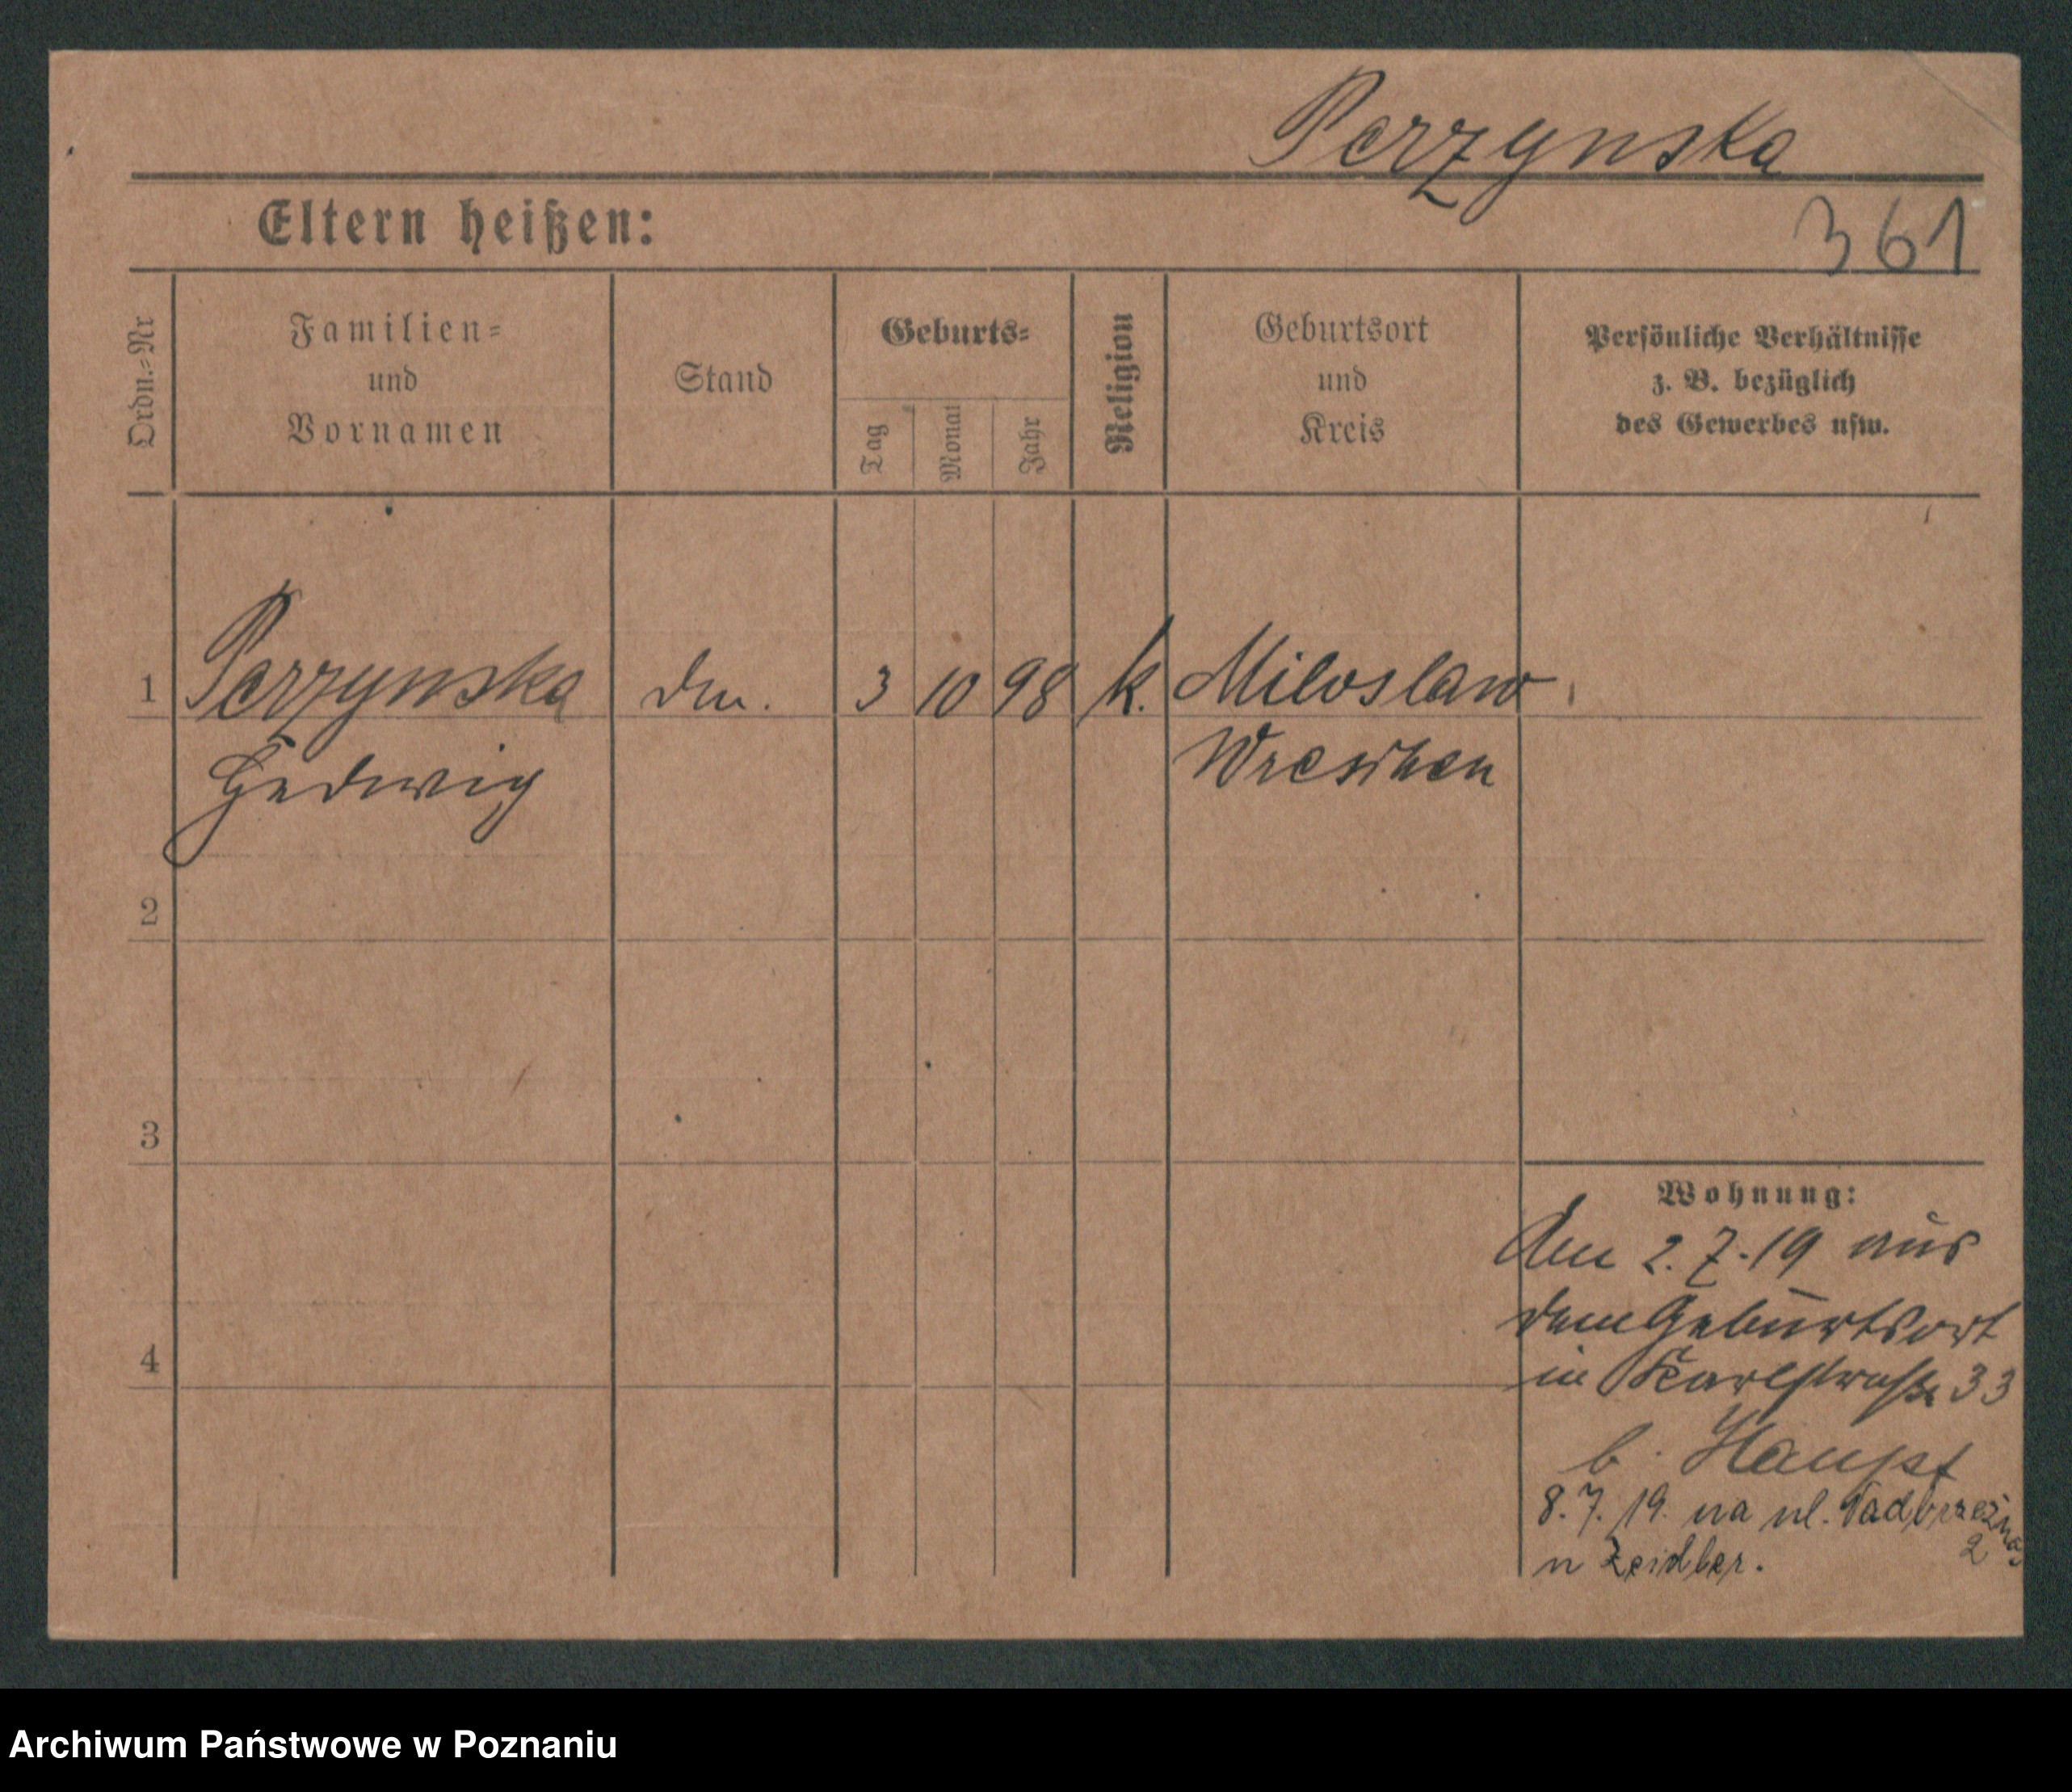 Perzynska
Eltern heißen:
361
Ordn.=Nr
Familien=
und
Vornamen
Stand
Geburts=
Tag
Monat
Jahr
Religion
Geburtsort
und
Kreis
Persönliche Verhältnisse
z. B. bezüglich
des Gewerbes usw.
1 Perzynska 3 10 98 k. Miloslaw
Hedwig Wreschen
2
3
Wohnung:
Am 2.7.19 aus
dem Geburtsort
4
in Karlstraße 33
b. Haupt
8.7.19. na ul. Nadbrzeżna
2
u Zeidler.
Archiwum Państwowe w Poznaniu